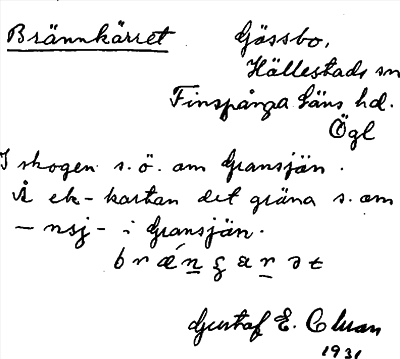 Brännkärret
Gössbo,
Hällestads sn
Finspånga läns hd.
Ögl
I skogen s.ö. om Gransjön.
Å ek-kartan det gröna s. om
-nsj- i Gransjön.
Gustaf E.
1931